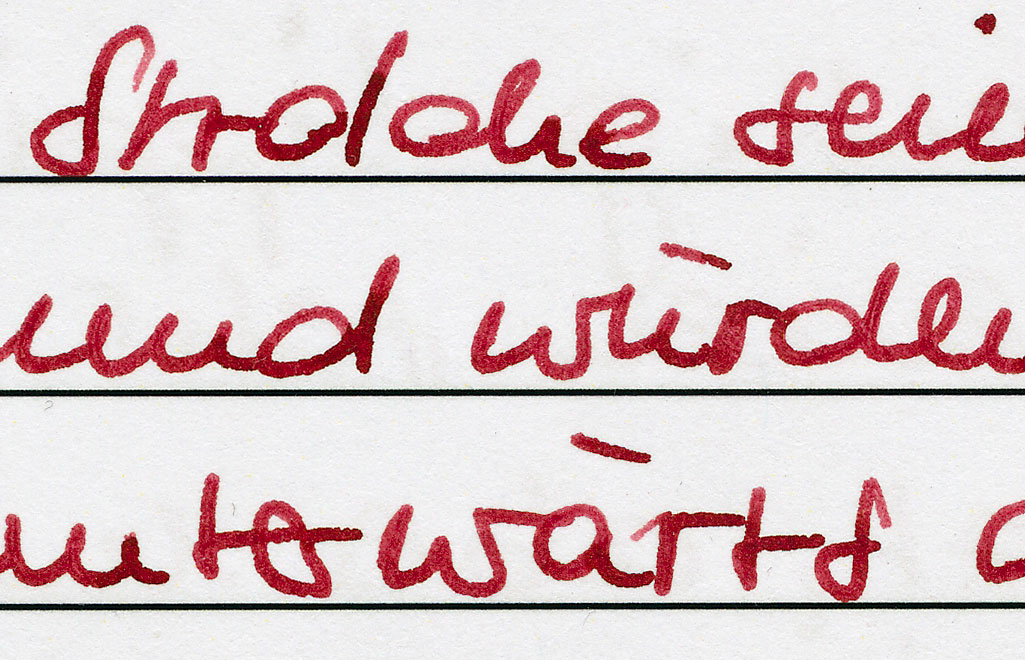 Strolche sei
und würden
ntswärts